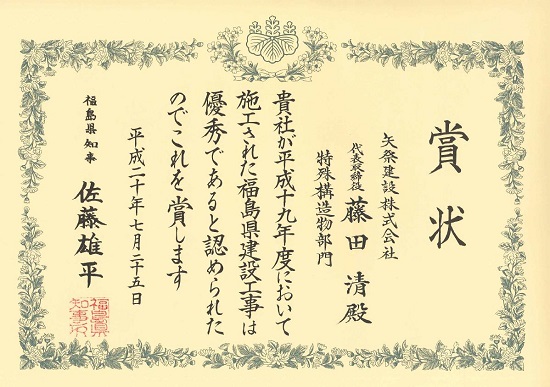 賞状
矢祭建設株式会社
代表取締役 藤田清殿
特殊構造物部門
貴社が平成十九年度において
施工された福島県建設工事は
優秀であると認められた
のでこれを賞します
平成二十年七月二十五日
福島県知事 佐藤雄平
福島県
知事之印